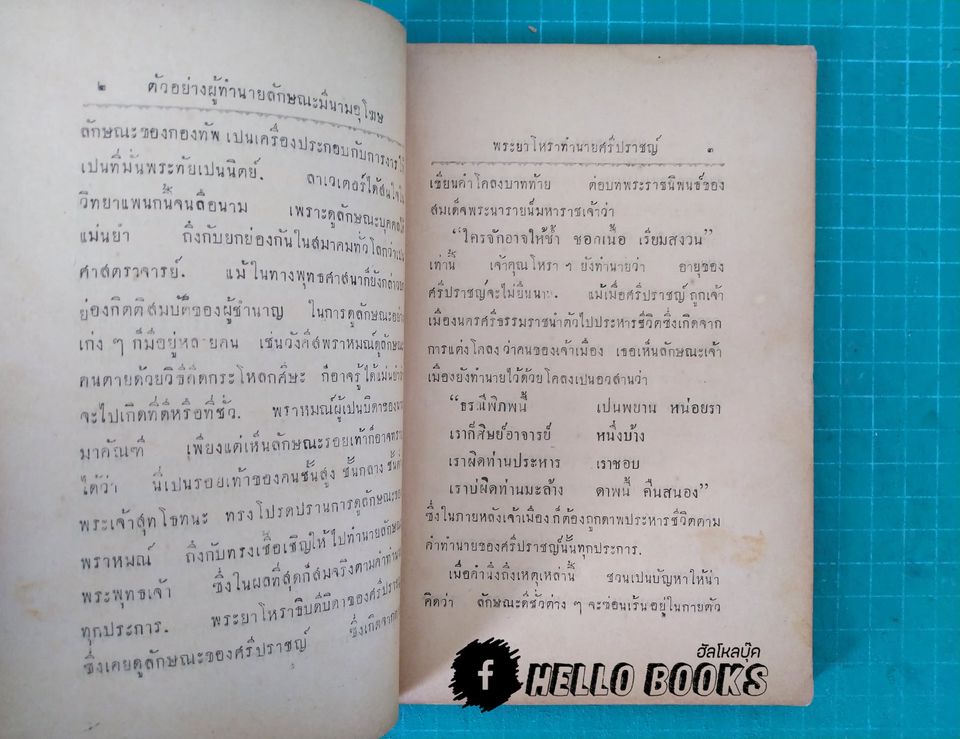 ๒ ตัวอย่างผู้ทำนายลักษณะมีนามอุโฆษ
ลักษณะของกองทัพ เปนเครื่องประกอบกับการงาร
เปนที่มั่นพระทัยเปนนิตย์. ลาเวเตอร์ได้สนใจใน
วิทยาแพนกนี้จนลือนาม เพราะดูลักษณะบุคคลได้
แม่นยำ ถึงกับยกย่องกันในสมาคมทั่วโลกว่าเปน
ศาสตราจารย์. แม้ในทางพุทธศาสนาก็ยังกล่าวยก
ย่องกิตติสมบัติของผู้ชำนาญ ในการดูลักษณะอย่าง
เก่ง ๆ ก็มีอยู่หลายคน เช่นวังคีสพราหมณ์ดูลักษณะ
คนตายด้วยวิธีคีดกระโหลกศีษะ ก็อาจรู้ได้แม่นยำว่า
จะไปเกิดที่ดีหรือที่ชั่ว. พราหมณ์ผู้เปนบิดาของนาง
มาคัณฑี เพียงแต่เห็นลักษณะรอยเท้าก็อาจทราบ
ได้ว่า นี่เปนรอยเท้าของคนชั้นสูง ชั้นกลาง ชั้นต่ำ
พระเจ้าสุทโธทนะ ทรงโปรดปรานการดูลักษณะของ
พราหมณ์ ถึงกับทรงเชื้อเชิญให้ไปทำนายลักษณะ
พระพุทธเจ้า ซึ่งในผลที่สุดก็สมจริงตามคำทำนาย
ทุกประการ. พระยาโหราธิบดีบิดาของศรีปราชญ์
ซึ่งเคยดูลักษณะของศรีปราชญ์ ซึ่งเกิดจาก
พระยาโหราทำนายศรีปราชญ์ ๓
เขียนคำโคลงบาทท้าย ต่อบทพระราชนิพนธ์ของ
สมเด็จพระนารายน์มหาราชเจ้าว่า
“ใครจักอาจให้ช้ำ ชอกเนื้อ เรียมสงวน”
เท่านี้ เจ้าคุณโหรา ฯ ยังทำนายว่า อายุของ
ศรีปราชญ์จะไม่ยืนนาน. แม้เมื่อศรีปราชญ์ ถูกเจ้า
เมืองนครศรีธรรมราชนำตัวไปประหารชีวิตซึ่งเกิดจาก
การแต่งโคลงว่าคนของเจ้าเมือง เธอเห็นลักษณะเจ้า
เมืองยังทำนายไว้ด้วยโคลงเปนอวสานว่า
“ธรณีพิภพนี้ เปนพยาน หน่อยรา
เราก็ศิษย์อาจารย์ หนึ่งบ้าง
เราผิดท่านประหาร เราชอบ
เราบ่ผิดท่านมะล้าง ดาพนี้ คืนสนอง”
ซึ่งในภายหลังเจ้าเมืองก็ต้องถูกดาพประหารชีวิตตาม
คำทำนายของศรีปราชญ์นั้นทุกประการ.
เมื่อคำนึงถึงเหตุเหล่านี้ ชวนเปนบัญหาให้น่า
คิดว่า ลักษณะดีชั่วต่าง ๆ จะซ่อนเร้นอยู่ในกายตัว
ฮัลโหลบุ๊ค
f HELLO BOOKS